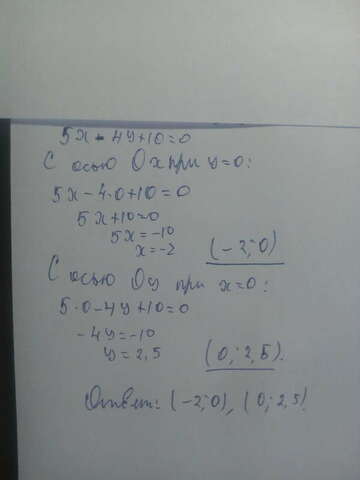 5x - 4y + 10 = 0
С осью Ox при y = 0:
5x - 4·0 + 10 = 0
5x + 10 = 0
5x = -10
x = -2
(-2; 0)
С осью Oy при x = 0:
5·0 - 4y + 10 = 0
-4y = -10
y = 2,5
(0; 2,5).
Ответ: (-2; 0), (0; 2,5).